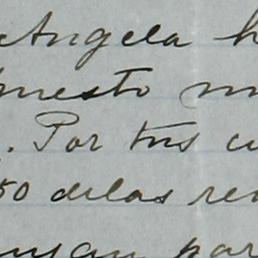 Angela h
puesto m
. Por tus cu
50 delas rev
por